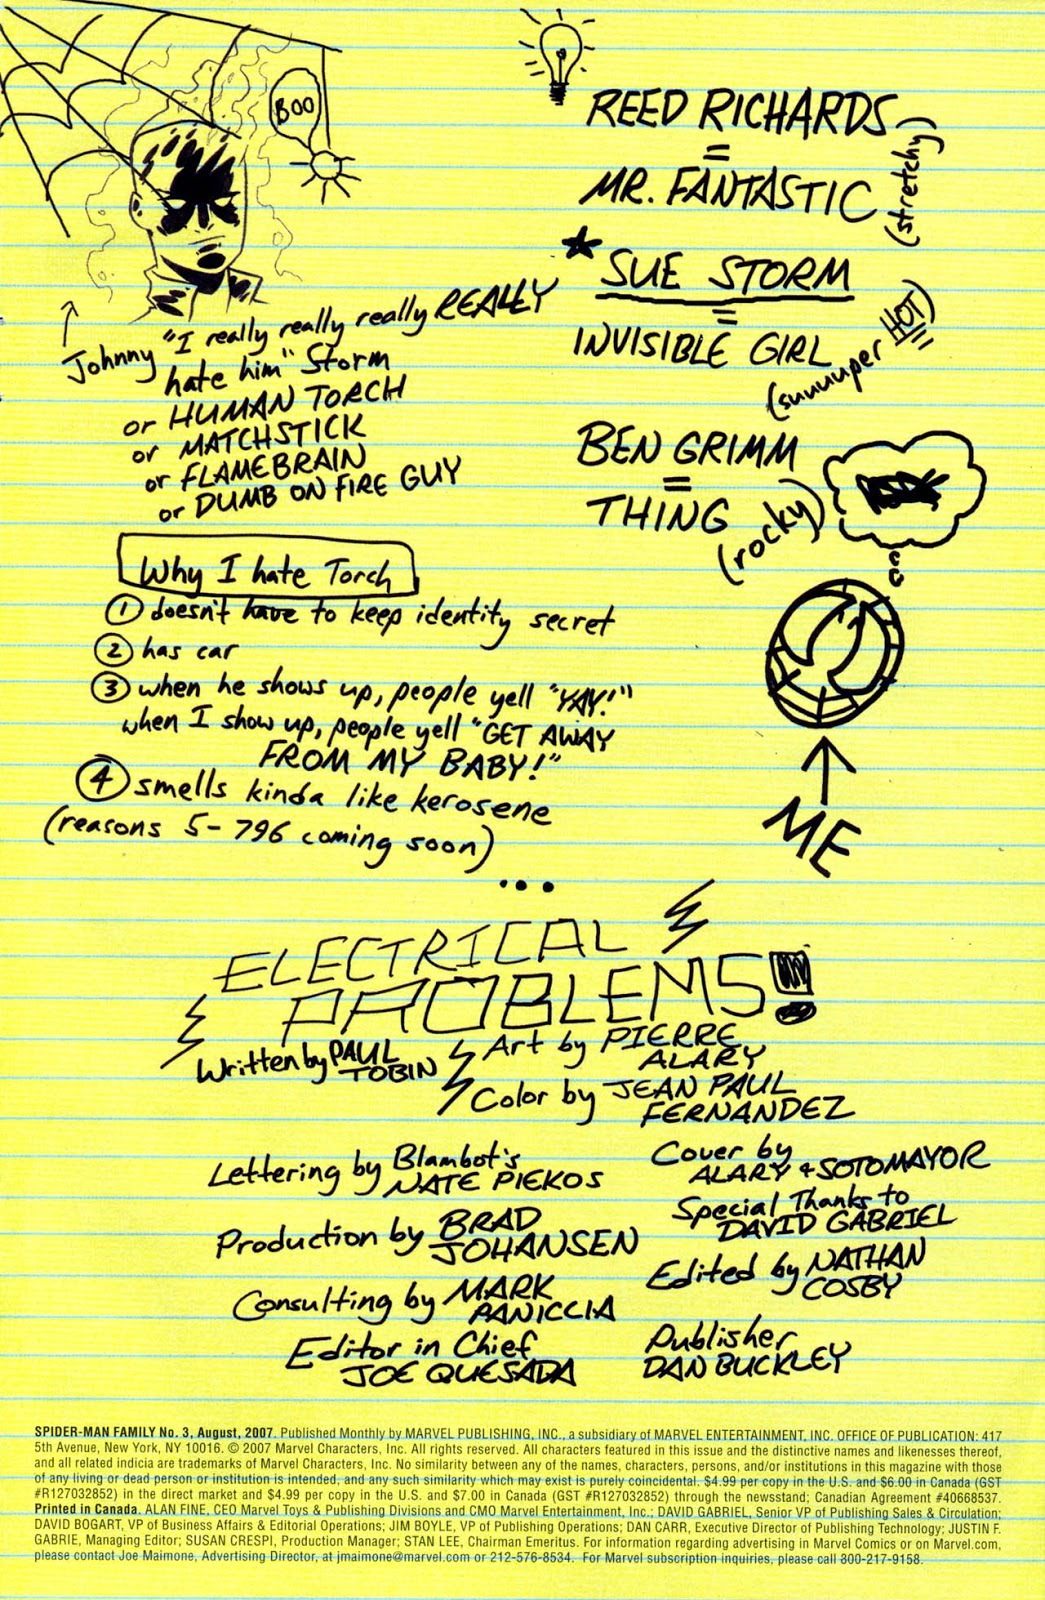 BOO
REED RICHARDS
=
MR. FANTASTIC
(stretchy)
SUE STORM
=
INVISIBLE GIRL
(suuuuper HOT)
BEN GRIMM
=
THING
(rocky)
ME
Johnny "I really really really REALLY
hate him" Storm
or HUMAN TORCH
or MATCHSTICK
or FLAMEBRAIN
or DUMB ON FIRE GUY
Why I hate Torch
1 doesn't have to keep identity secret
2 has car
3 when he shows up, people yell "YAY!"
when I show up, people yell "GET AWAY
FROM MY BABY!"
4 smells kinda like kerosene
(reasons 5-796 coming soon)
...
ELECTRICAL
PROBLEMS!
Written by PAUL
TOBIN
Art by PIERRE
ALARY
Color by JEAN PAUL
FERNANDEZ
Lettering by Blambot's
NATE PIEKOS
Cover by
ALARY + SOTOMAYOR
Special Thanks to
DAVID GABRIEL
Production by BRAD
JOHANSEN
Edited by NATHAN
COSBY
Consulting by MARK
PANICCIA
Editor in Chief
JOE QUESADA
Publisher
DAN BUCKLEY
SPIDER-MAN FAMILY No. 3, August, 2007. Published Monthly by MARVEL PUBLISHING, INC., a subsidiary of MARVEL ENTERTAINMENT, INC. OFFICE OF PUBLICATION: 417
5th Avenue, New York, NY 10016. © 2007 Marvel Characters, Inc. All rights reserved. All characters featured in this issue and the distinctive names and likenesses thereof,
and all related indicia are trademarks of Marvel Characters, Inc. No similarity between any of the names, characters, persons, and/or institutions in this magazine with those
of any living or dead person or institution is intended, and any such similarity which may exist is purely coincidental. $4.99 per copy in the U.S. and $6.00 in Canada (GST
#R127032852) in the direct market and $4.99 per copy in the U.S. and $7.00 in Canada (GST #R127032852) through the newsstand; Canadian Agreement #40668537.
Printed in Canada. ALAN FINE, CEO Marvel Toys & Publishing Divisions and CMO Marvel Entertainment, Inc.; DAVID GABRIEL, Senior VP of Publishing Sales & Circulation;
DAVID BOGART, VP of Business Affairs & Editorial Operations; JIM BOYLE, VP of Publishing Operations; DAN CARR, Executive Director of Publishing Technology; JUSTIN F.
GABRIE, Managing Editor; SUSAN CRESPI, Production Manager; STAN LEE, Chairman Emeritus. For information regarding advertising in Marvel Comics or on Marvel.com,
please contact Joe Maimone, Advertising Director, at jmaimone@marvel.com or 212-576-8534. For Marvel subscription inquiries, please call 800-217-9158.